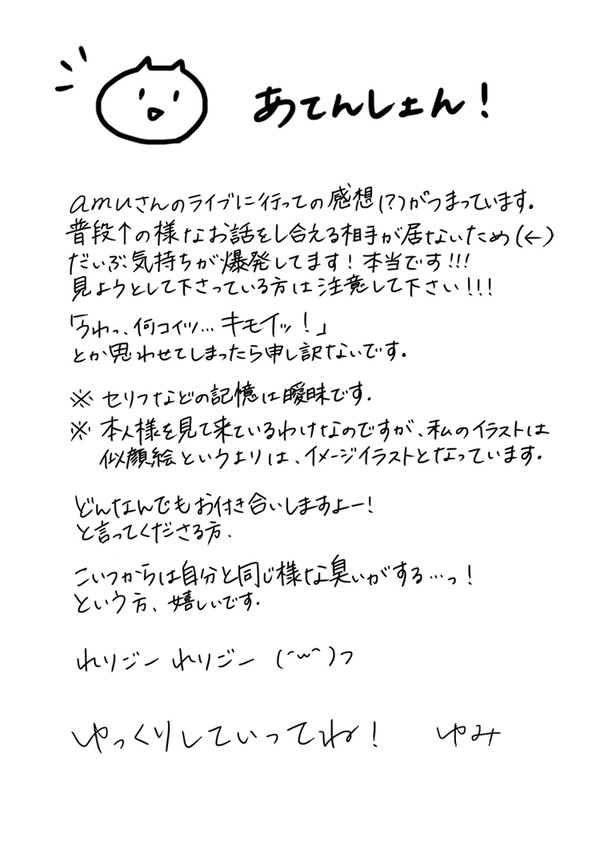 あてんしょん！
amuさんのライブに行っての感想(?)がつまっています。
普段↑の様なお話をし合える相手が居ないため(←)
だいぶ気持ちが爆発してます！本当です!!!
見ようとして下さっている方は注意して下さい!!!
「うわっ、何コイツ…キモイッ！」
とか思わせてしまったら申し訳ないです。
※ セリフなどの記憶は曖昧です。
※ 本人様を見て来ているわけなのですが、私のイラストは
似顔絵というよりは、イメージイラストとなっています。
どんなんでもお付き合いしますよー！
と言ってくださる方、
こいつからは自分と同じ様な臭いがする…っ！
という方、嬉しいです。
れりごー れりごー (˘ω˘)っ
ゆっくりしていってね！ ゆみ